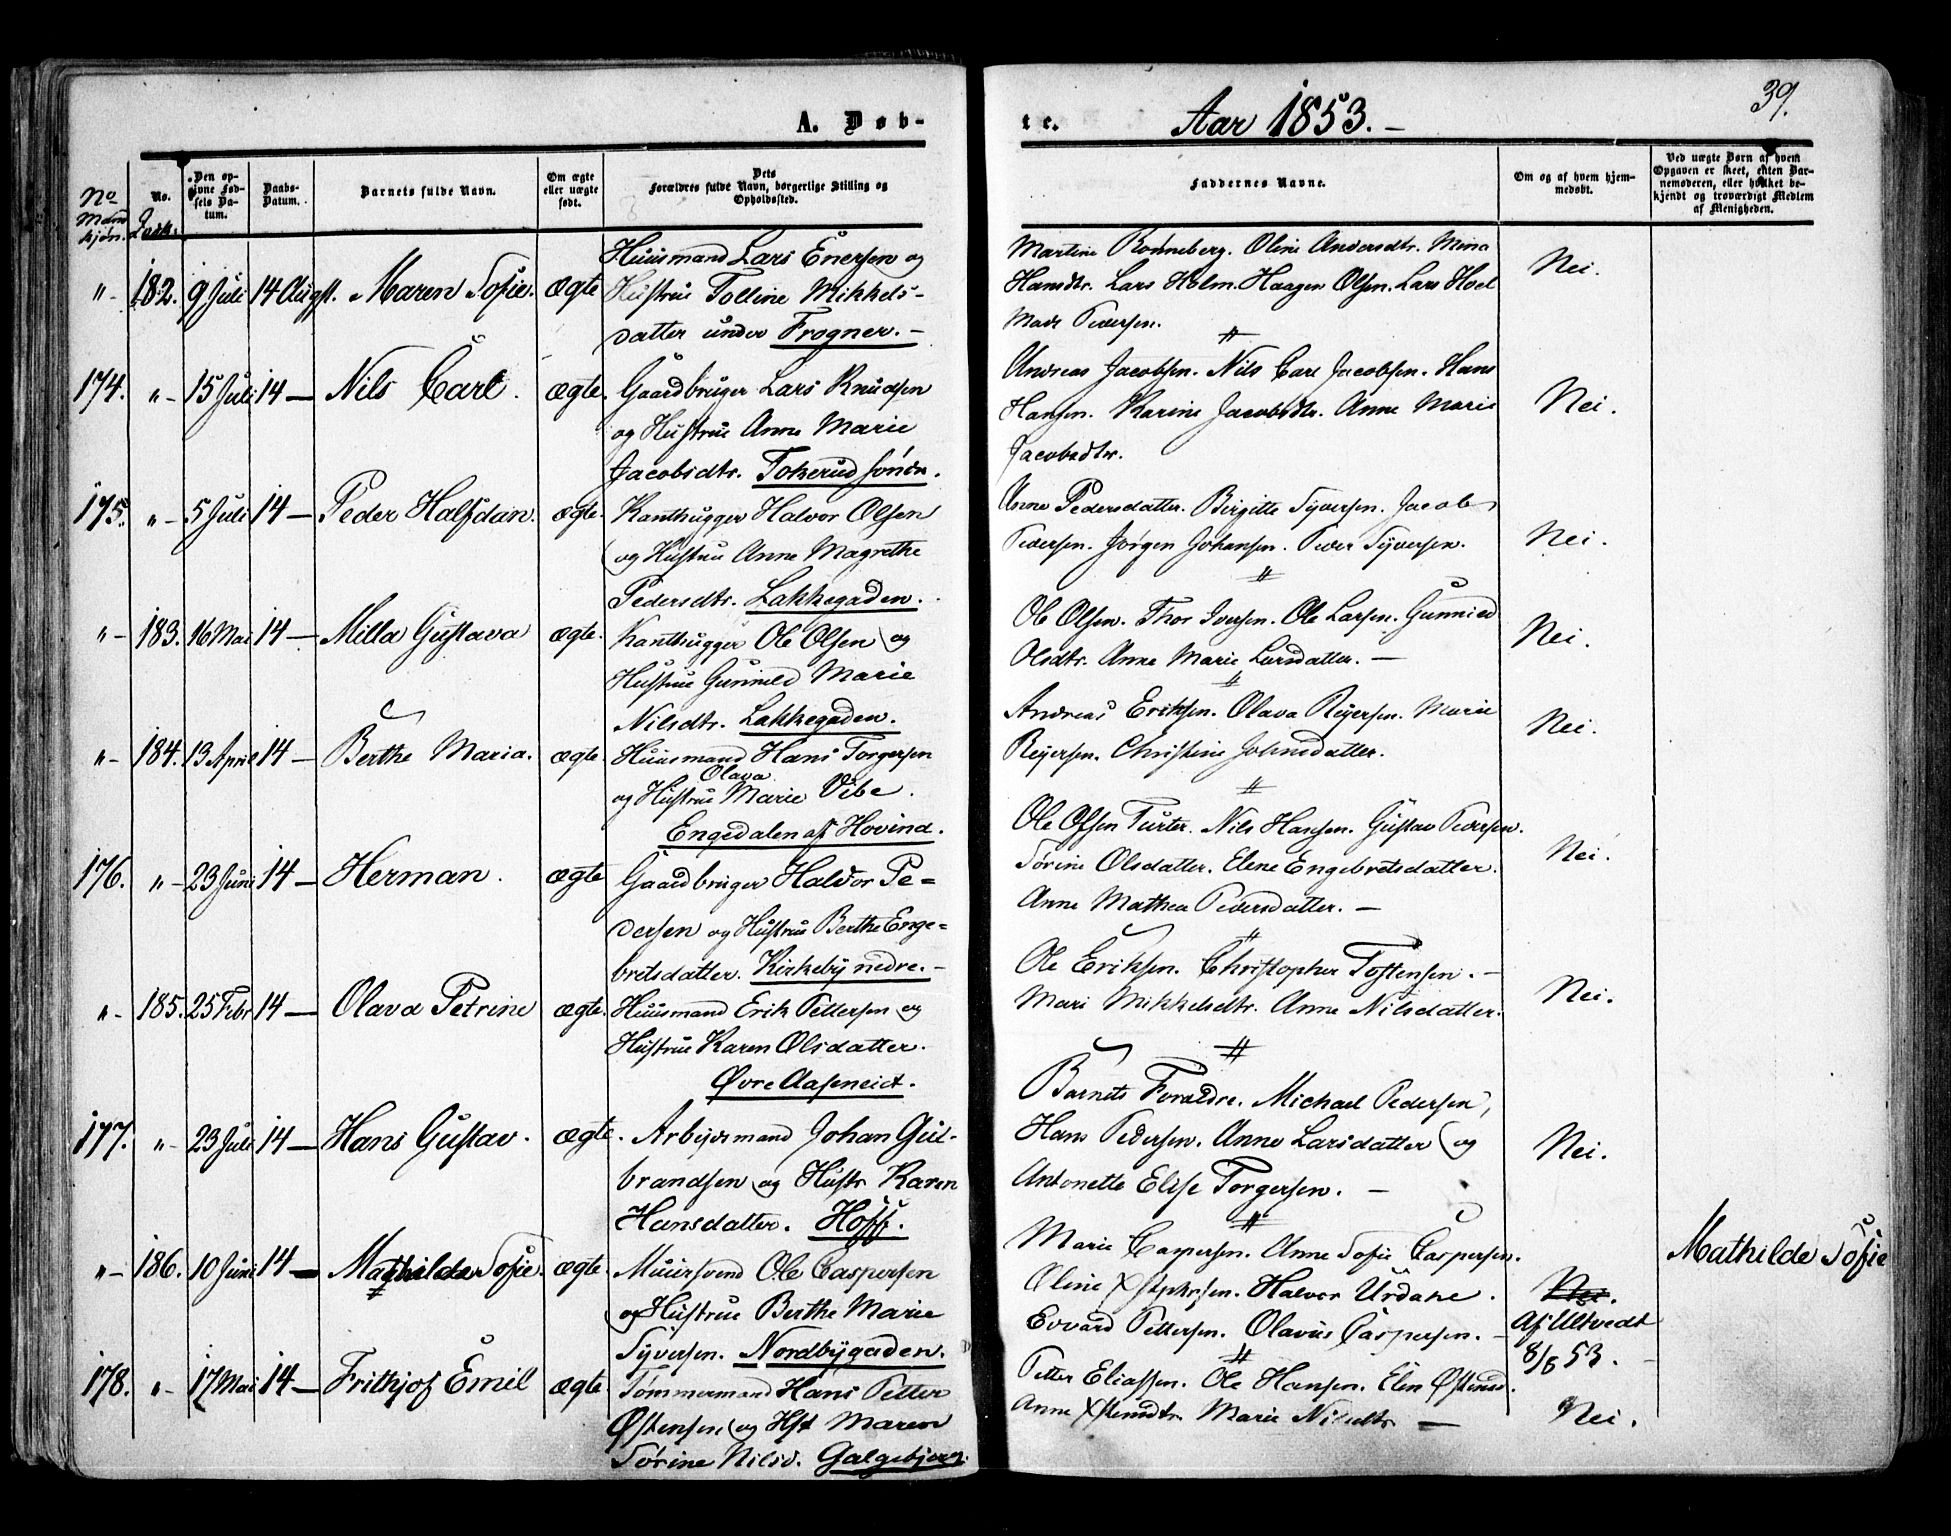 A. Døb-
No Mandkjøn.
No. Qvik.
Den opgivne Fødsels Datum.
Daabs-Datum.
Barnets fulde Navn.
Om ægte eller uægte født.
Dets Forældres fulde Navn, borgerlige Stilling og Opholdssted.
"- 182. 9 Juli 14 Augst. Maren Sofie. ægte
Huusmand Lars Enersen og
Hustrue Tolline Mikkels-
datter under Frogner. -
174. "- 15 Juli 14 - Nils Carl. ægte.
Gaardbruger Lars Knudsen
og Hustrue Anne Marie
Jacobsdtr. Tokerud søndr.
175. "- 5 Juli 14 - Peder Halfdan. ægte.
Kanthugger Halvor Olsen
og Hustrue Anne Magrethe
Pedersdtr. Lakkegaden.
"- 183. 16 Mai 14 - Milla Gustava ægte.
Kanthugger Ole Olsen og
Hustrue Gunnild Marie
Nilsdtr. Lakkegaden.
"- 184. 13 April 14 - Berthe Maria. ægte
Huusmand Hans Torgersen
Olava
og Hustrue Marie Vibe.
Engedalen af Hovind.
176. "- 23 Juni 14 - Herman. ægte
Gaardbruger Halvor Pe=
dersen og Hustrue Berthe Enge=
bretsdatter. Kirkeby nedre. -
"- 185. 25 Febr 14 - Olava Petrine ægte.
Huusmand Erik Pettersen og
Hustrue Karen Olsdatter.
Øvre Aaseneict.
177. "- 23 Juli 14 - Hans Gustav. ægte.
Arbejdsmand Johan Gul-
brandsen og Hustr Karen
Hansdatter. Hoff.
"- 186. 10 Juni 14 - Mathilde Sofie. ægte.
Muursvend Ole Caspersen
og Hustrue Berthe Marie
Syversen. Nordbygaden.
178. "- 17 Mai 14 - Frithjof Emil ægte
Tømmermand Hans Petter
Østensen og Hst Maren
Sørine Nilsd. Galgebjerg.
te. Aar 1853. -
39.
Faddernes Navne.
Om og af hvem hjemmedøbt.
Ved uægte Børn af hvem Opgaven er skeet, enten Barnemoderen, eller hvilket bekjendt og troværdigt Medlem af Menigheden.
Martine Rønneberg. Oline Andersdtr. Mina
Hansdtr. Lars Holm. Haagen Olsen. Lars Hoel
Mads Pedersen.
Nei.
Andreas Jacobsen. Nils Carl Jacobsen. Hans
Hansen. Karine Jacobsdtr. Anne Marie
Jacobsdtr.
Nei.
Anne Pedersdatter. Birgitte Syversen. Jacob
Pedersen. Jørgen Johansen. Peder Syversen.
Nei.
Ole Olsen. Thor Iversen. Ole Larsen. Gunnild
Olsdtr. Anne Marie Larsdatter. -
Nei.
Andreas Eriksen. Olava Reyersen. Marie
Reyersen. Christine Johnsdatter.
Nei.
Ole Olsen Furter. Nils Hansen. Gustav Pedersen.
Sørine Olsdatter. Elene Engebretsdatter.
Anne Mathea Pedersdatter. -
Nei.
Ole Eriksen. Christopher Tostensen. -
Mari Mikkelsdtr. Anne Nilsdatter.
Nei.
Barnets Forældre. Michael Pedersen,
Hans Pedersen. Anne Larsdatter og
Antonette Elise Torgersen. -
Nei.
Marie Caspersen. Anne Sofie Caspersen.
Oline Xstphersen. Halvor Urdahe.
Edvard Pettersen. Olavus Caspersen. -
Nei.
Af Ultvedt
8/8 53.
Mathilde Sofie
Petter Eliassen. Ole Hansen. Elen Østensd.
Anne Xstensdtr Marie Nilsdtr. -
Nei.